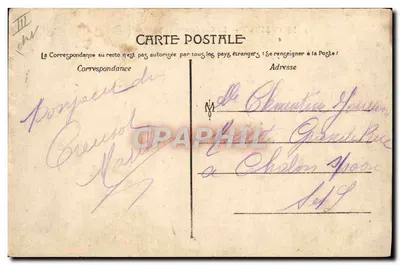 III
CARTE POSTALE
La Correspondance au recto n'est pas autorisée par tous les pays étrangers (Se renseigner à la Poste)
Correspondance
Adresse
Bonjour du
Creusot
Mlle Clémentine
Grande Rue
CPARHIL
à Chalon s/Saône
S et L